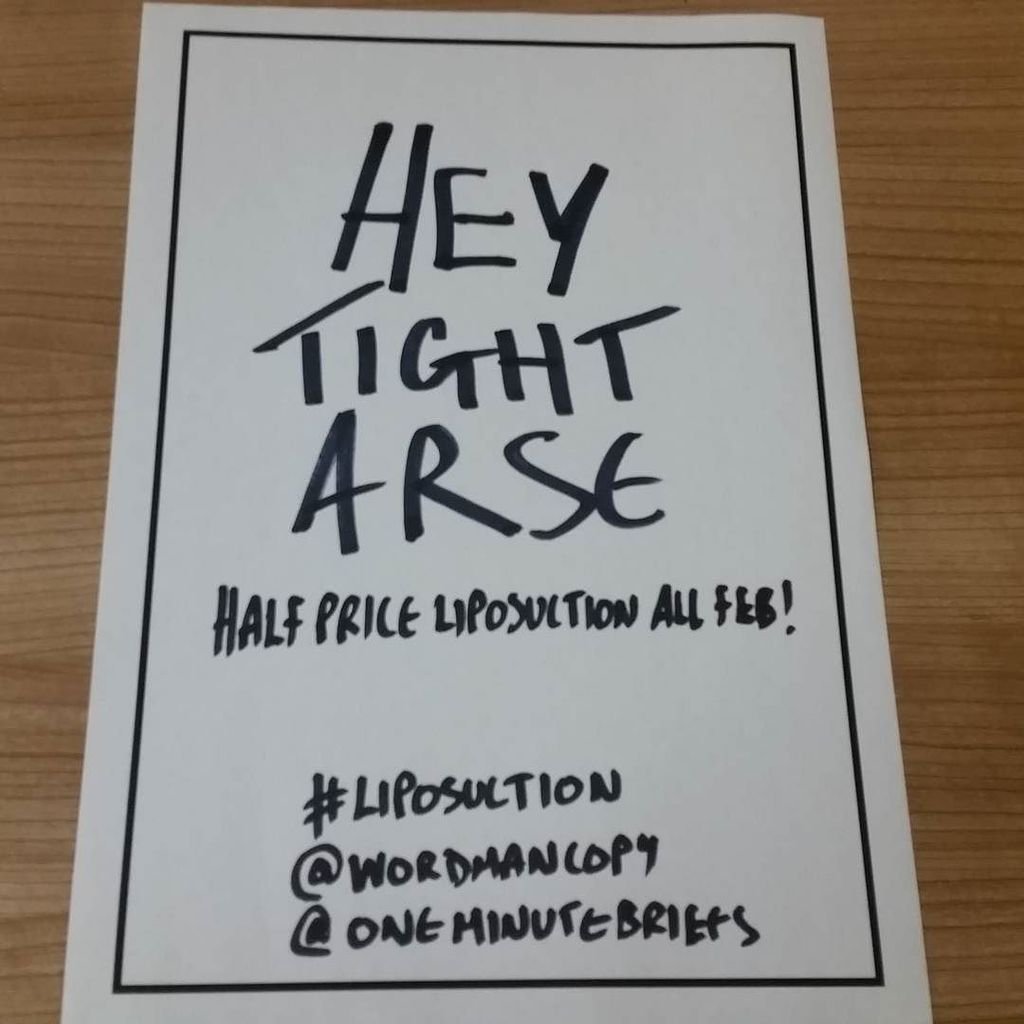 HEY
TIGHT
ARSE
HALF PRICE LIPOSUCTION ALL FEB!
#LIPOSUCTION
@WORDMANCOPY
@ONEMINUTEBRIEFS